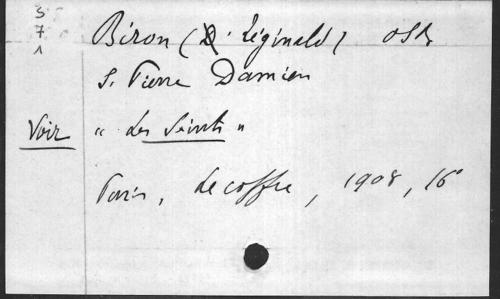 S
7
1
Biron (D. Réginald) OSB
S. Pierre Damien
Voir « Les Saints »
Paris, Lecoffre, 1908, 16°